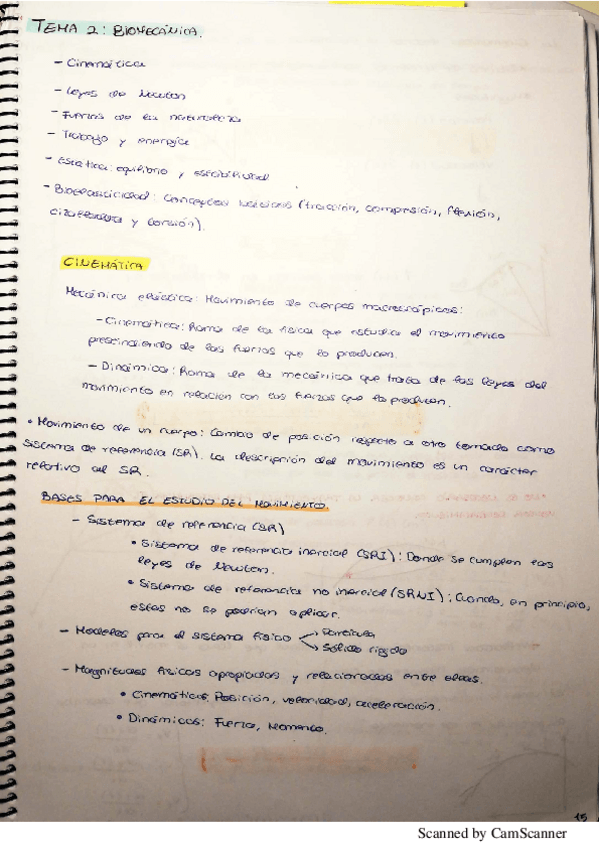 TEMA 2: BIOMECÁNICA.
- Cinemática
- Leyes de Newton
- Fuerzas de la naturaleza
- Trabajo y energía
- Estática: equilibrio y estabilidad
- Bioelasticidad: Conceptos básicos (tracción, compresión, flexión,
cizalladura y torsión).
CINEMÁTICA
Mecánica clásica: Movimiento de cuerpos macroscópicos:
- Cinemática: Rama de la física que estudia el movimiento
prescindiendo de las fuerzas que lo producen.
- Dinámica: Rama de la mecánica que trata de las leyes del
movimiento en relación con las fuerzas que lo producen.
• Movimiento de un cuerpo: Cambio de posición respecto a otro tomado como
sistema de referencia (SR). La descripción del movimiento es un carácter
relativo al SR.
BASES PARA EL ESTUDIO DEL MOVIMIENTO.
- Sistema de referencia (SR)
• Sistema de referencia inercial (SRI): Donde se cumplen las
leyes de Newton.
• Sistema de referencia no inercial (SRNI): Cuando, en principio,
estas no se podrían aplicar.
- Modelos para el sistema físico → Partícula
→ Sólido rígido
- Magnitudes físicas apropiadas y relacionadas entre ellas.
• Cinemáticas: Posición, velocidad, aceleración.
• Dinámicas: Fuerza, Momento.
15
Scanned by CamScanner